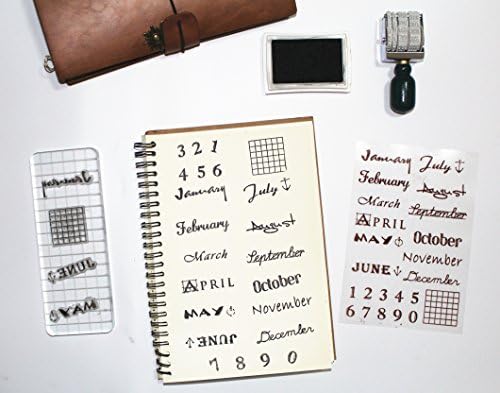 January
JUNE
MAY
3 2 1
4 5 6
January July
February August
March September
APRIL October
MAY November
JUNE December
7 8 9 0
January July
February August
March September
APRIL
MAY October
November
JUNE December
1 2 3 4 5
6 7 8 9 0